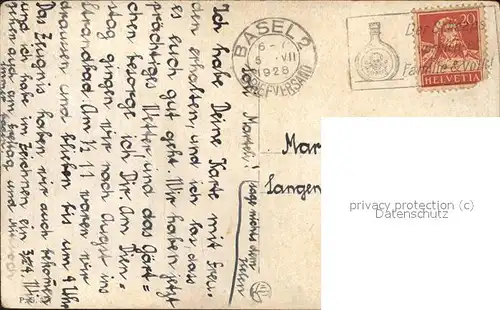 Liebes Marteli!
Ich habe Deine Karte mit Freu=
den erhalten, und ich las, dass
es euch gut geht. Wir haben jetzt
prächtiges Wetter und das Gärt=
chen besorge ich Dir. Am Dien=
stag gingen wir nach Augst ins
Strandbad. Am ½ 11 waren wir
draussen und blieben bis um 4 Uhr
Das Zeugnis haben wir auch bekommen
und ich habe im Zeichnen ein
auch am Freitag und
sage nichts dem
BASEL 2
6-7
5 VII
1928
BRIEFVERSAND
Der
Familie & Volk!
20
HELVETIA
Mar
Langen
privacy protection
www.oldthing.com